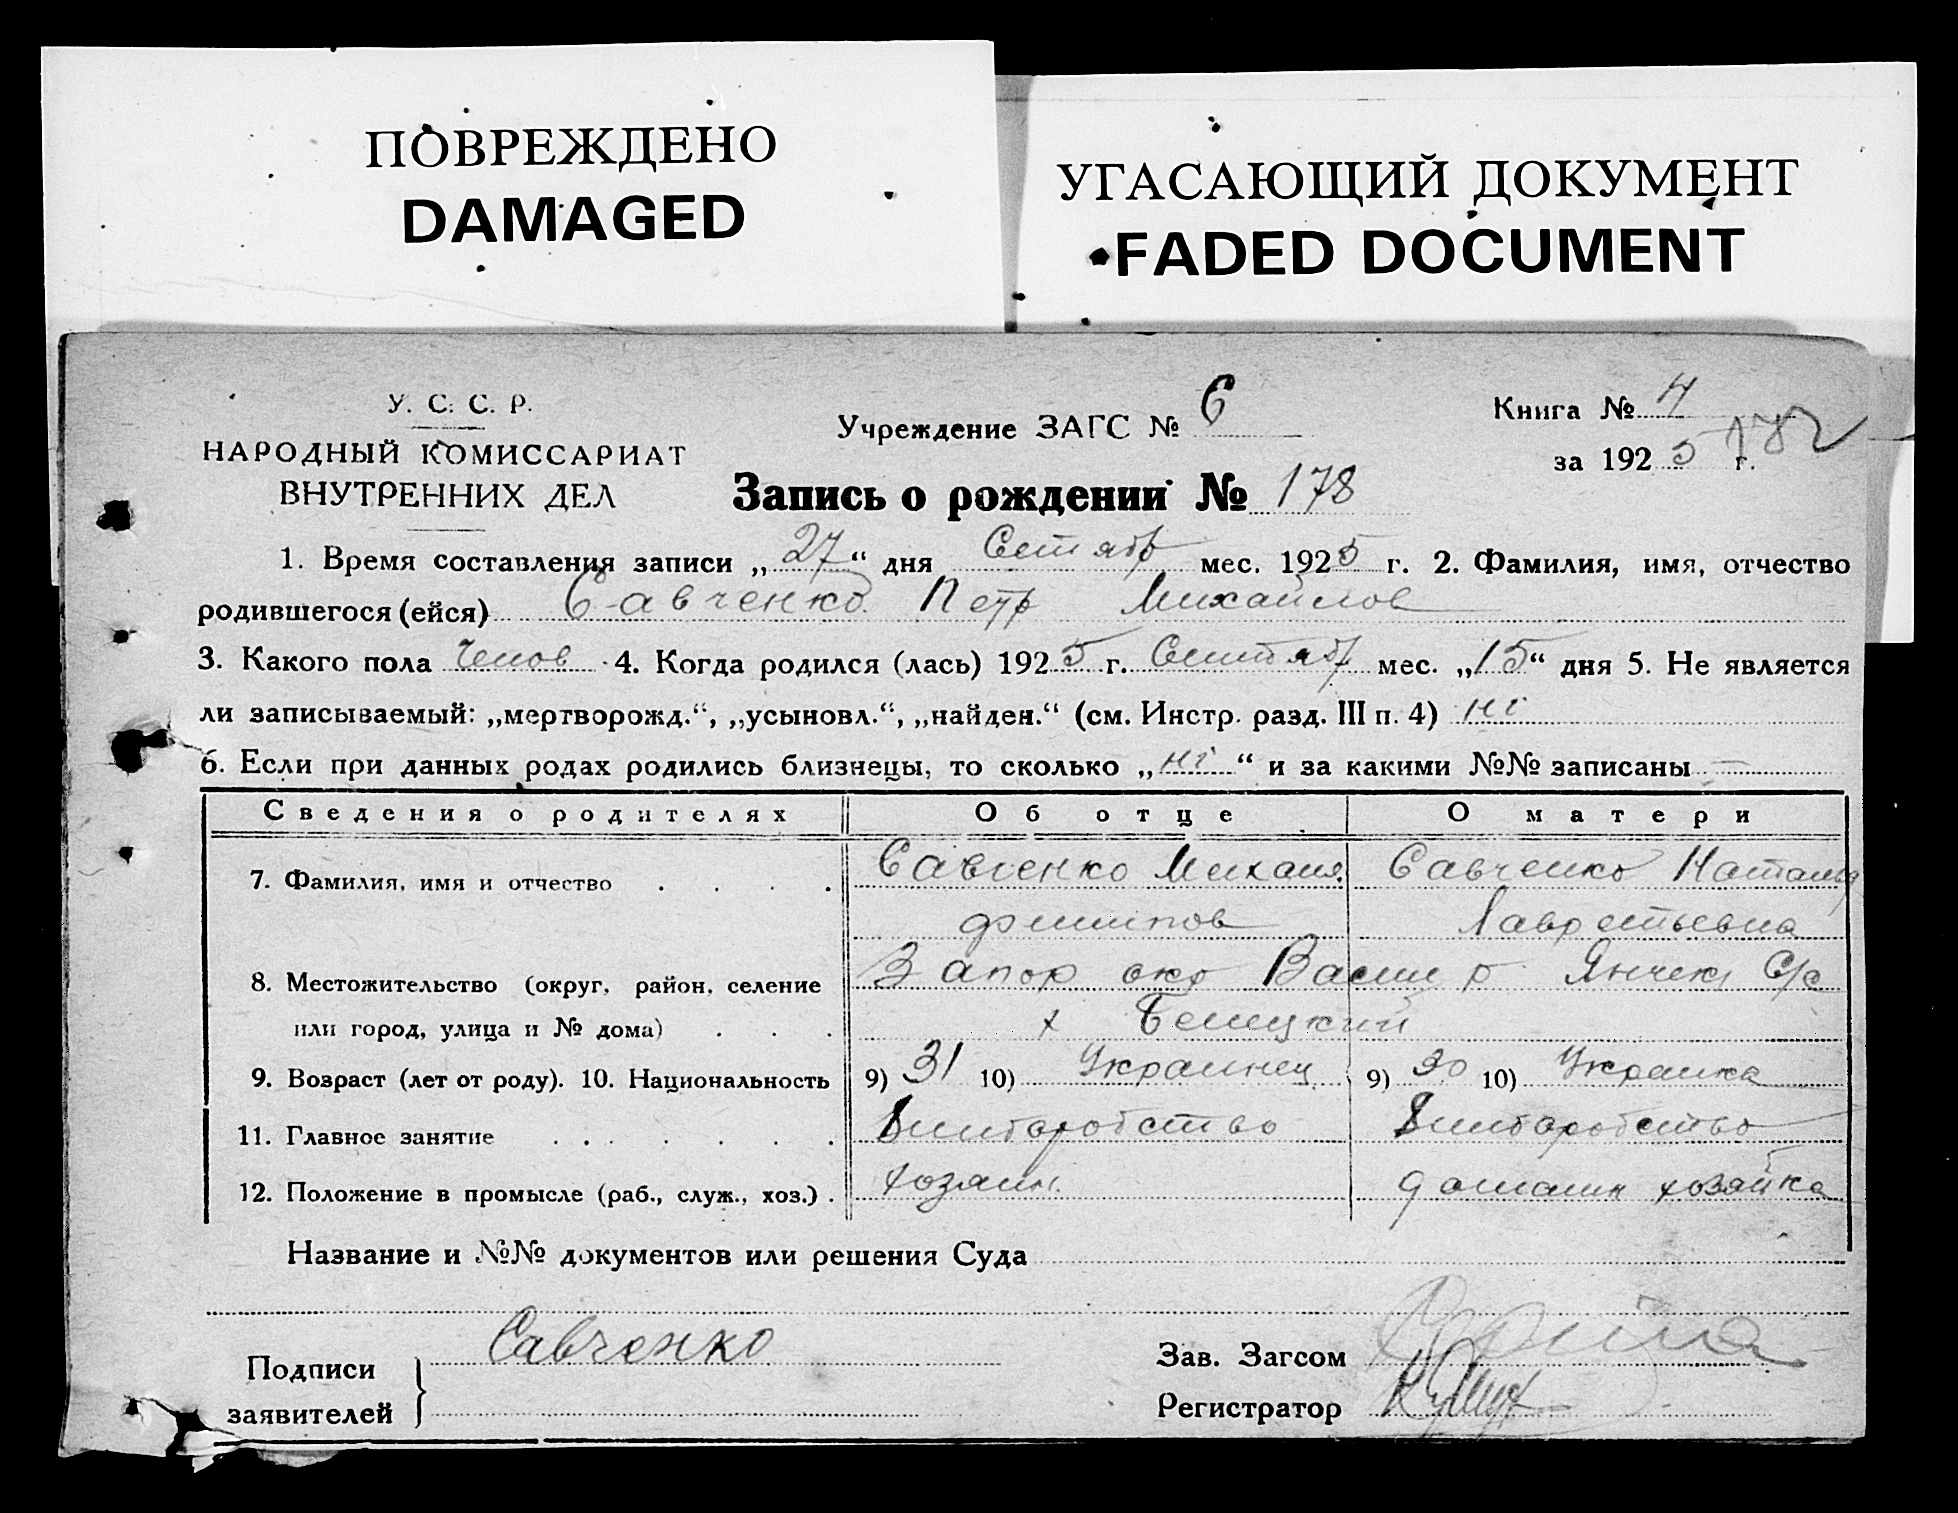 ПОВРЕЖДЕНО
DAMAGED
УГАСАЮЩИЙ ДОКУМЕНТ
FADED DOCUMENT
У. С. С. Р.
НАРОДНЫЙ КОМИССАРИАТ
ВНУТРЕННИХ ДЕЛ
Учреждение ЗАГС № 6
Книга № 4
за 1925 г.
182
Запись о рождении № 178
1. Время составления записи „27“ дня Сентяб мес. 1925 г. 2. Фамилия, имя, отчество
родившегося (ейся) Савченко Петр Михайлов
3. Какого пола Челов 4. Когда родился (лась) 1925 г. Сентяб мес. „15“ дня 5. Не является
ли записываемый: „мертворожд.“, „усыновл.“, „найден.“ (см. Инстр. разд. III п. 4) ні
6. Если при данных родах родились близнецы, то сколько „ні“ и за какими №№ записаны —
Сведения о родителях Об отце О матери
7. Фамилия, имя и отчество Савченко Михаил Савченко Наталия
Филипов Лаврентьевна
8. Местожительство (округ, район, селение Запор окр Васил р Янчекр С/с
или город, улица и № дома) х Белецкий
9. Возраст (лет от роду). 10. Национальность 9) 31 10) Украинец 9) 30 10) Украинка
11. Главное занятие Хлиборобство Хлиборобство
12. Положение в промысле (раб., служ., хоз.) хозяин домашн хозяйка
Название и №№ документов или решения Суда
Подписи заявителей } Савченко
Зав. Загсом
Регистратор